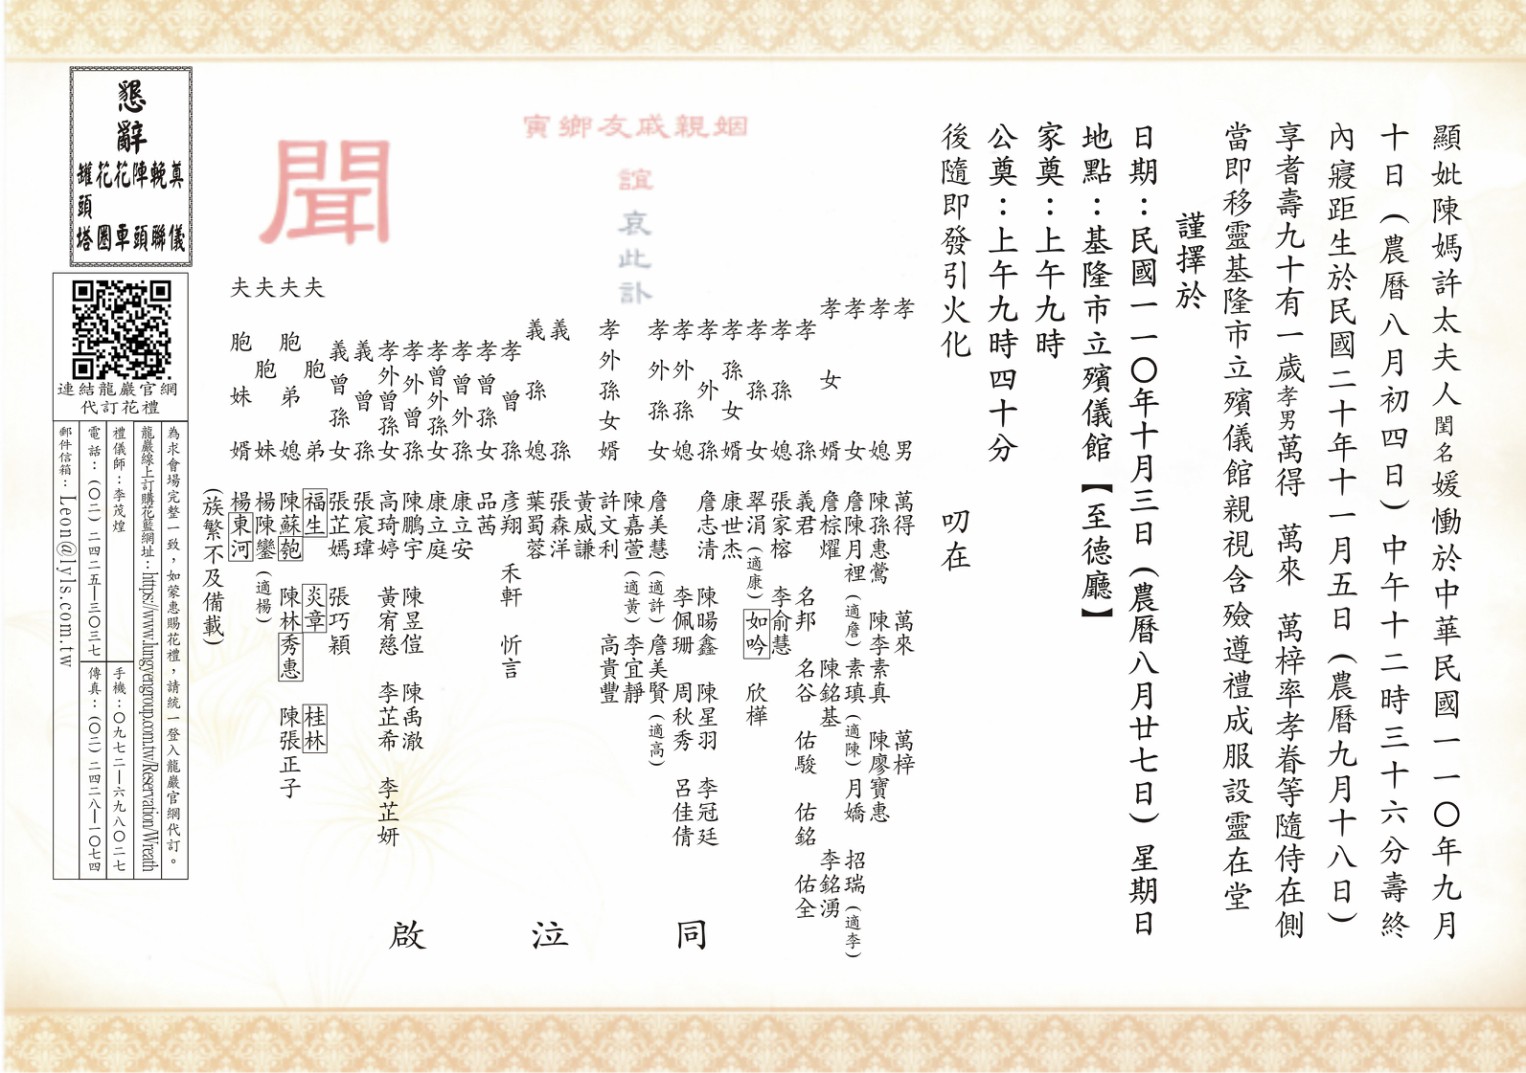 顯妣陳媽許太夫人閨名媛慟於中華民國一一〇年九月
十日(農曆八月初四日)中午十二時三十六分壽終
內寢距生於民國二十年十一月五日(農曆九月十八日)
享耆壽九十有一歲孝男萬得 萬來 萬梓率孝眷等隨侍在側
當即移靈基隆市立殯儀館親視含殮遵禮成服設靈在堂
謹擇於
日期:民國一一〇年十月三日(農曆八月廿七日)星期日
地點:基隆市立殯儀館【至德廳】
家奠:上午九時
公奠:上午九時四十分
後隨即發引火化 叨在
姻親戚友鄉寅
誼
哀此訃
聞
孝男 萬得 萬來 萬梓
孝媳 陳孫惠鶯 陳李素真 陳廖寶惠
孝女 詹陳月裡(適詹) 素瑱(適陳) 月嬌 招瑞(適李)
孝女婿 詹棕燿 陳銘基 李銘湧
孝孫 義君 名邦 名谷 佑駿 佑銘 佑全
孝孫媳 張家榕 李俞慧
孝孫女 翠涓(適康) 如吟 欣樺
孝孫女婿 康世杰
孝外孫 詹志清 陳暘鑫 陳星羽 李冠廷
孝外孫媳 李佩珊 周秋秀 呂佳倩
孝外孫女 詹美慧(適許) 詹美賢(適高)
陳嘉萱(適黃) 李宜靜
孝外孫女婿 許文利 高貴豐
黃威謙
義孫 張森洋
義孫媳 葉蜀蓉
孝曾孫 彥翔 禾軒 忻言
孝曾孫女 品茜
孝曾外孫 康立安
孝曾外孫女 康立庭
孝外曾孫 陳鵬宇 陳昱愷 陳禹澈
孝外曾孫女 高琦婷 黃宥慈 李芷希 李芷妍
義曾孫 張宸瑋
義曾孫女 張芷嫣 張巧穎
夫胞弟 福生 炎章 桂林
夫胞弟媳 陳蘇匏 陳林秀惠 陳張正子
夫胞妹 楊陳鑾(適楊)
夫胞妹婿 楊東河
(族繁不及備載)
同泣啟
懇辭
奠儀
輓聯
陣頭
花車
花圈
罐頭塔
連結龍巖官網
代訂花禮
為求會場完整一致,如蒙惠賜花禮,請統一登入龍巖官網代訂。
龍巖線上訂購花籃網址:https://www.lungyengroup.com.tw/Reservation/Wreath
禮儀師:李茂煌
手機:〇九七二—六九八〇二七
電話:(〇二)二四二五—三〇三七
傳真:(〇二)二四二八—一〇七四
郵件信箱:Leon@lyls.com.tw